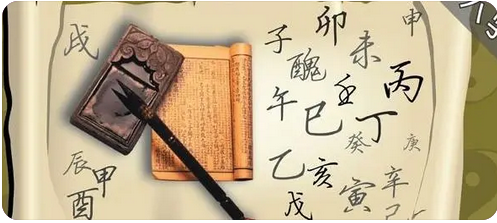 戌
子
卯
醜
未
申
午
壬
丙
巳
丁
癸
庚
辰
甲
酉
乙
亥
戊
寅
辛